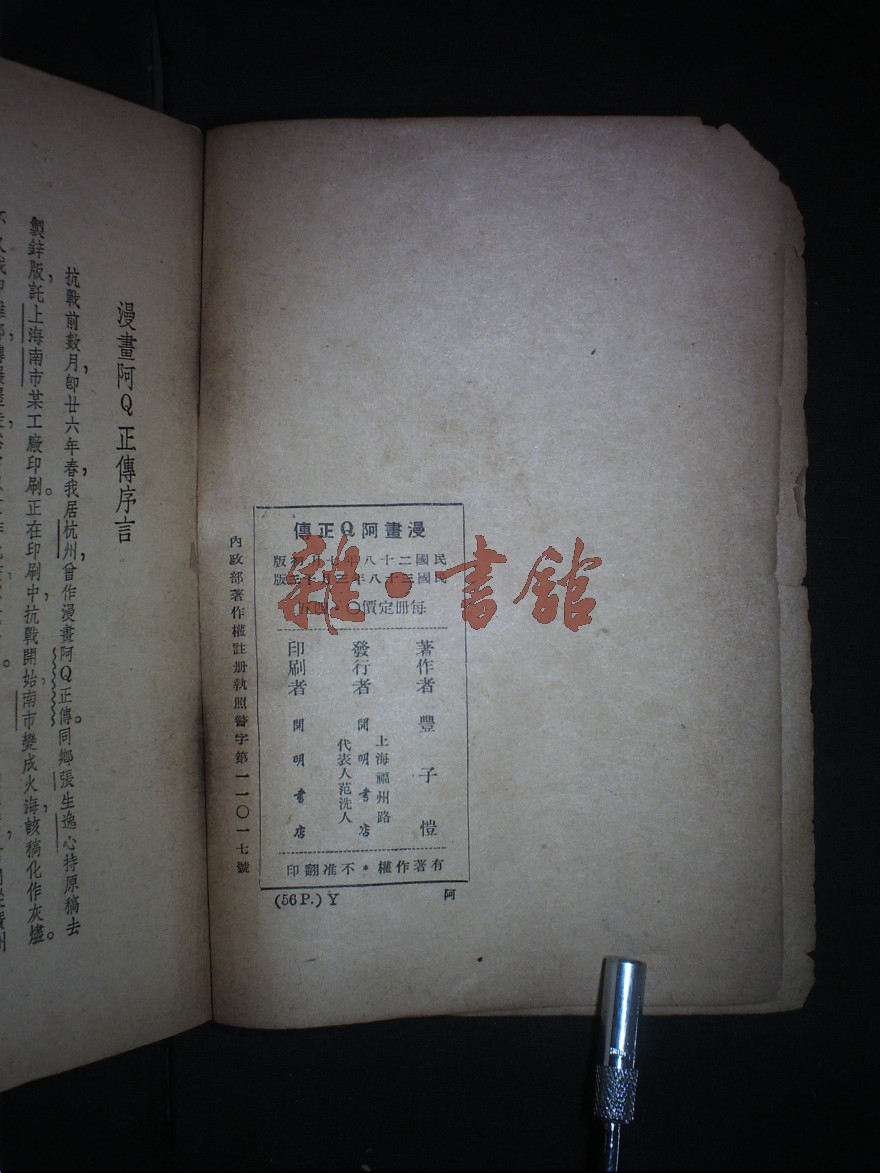 漫畫阿Q正傳
民國二十八年七月初版
民國三十八年三月
版
每册定價〇
著作者 豐子愷
發行者 開明書店
上海福州路
代表人范洗人
印刷者 開明書店
有著作權*不准翻印
內政部著作權註册執照警字第一一〇一七號
(56P.) Y
阿
雜·書館
漫畫阿Q正傳序言
抗戰前數月,卽廿六年春,我居杭州,曾作漫畫阿Q正傳。同鄉張生逸心持原稿去
製鋅版,託上海南市某工廠印刷。正在印刷中,抗戰開始,南市變成火海,該稿化作灰燼。